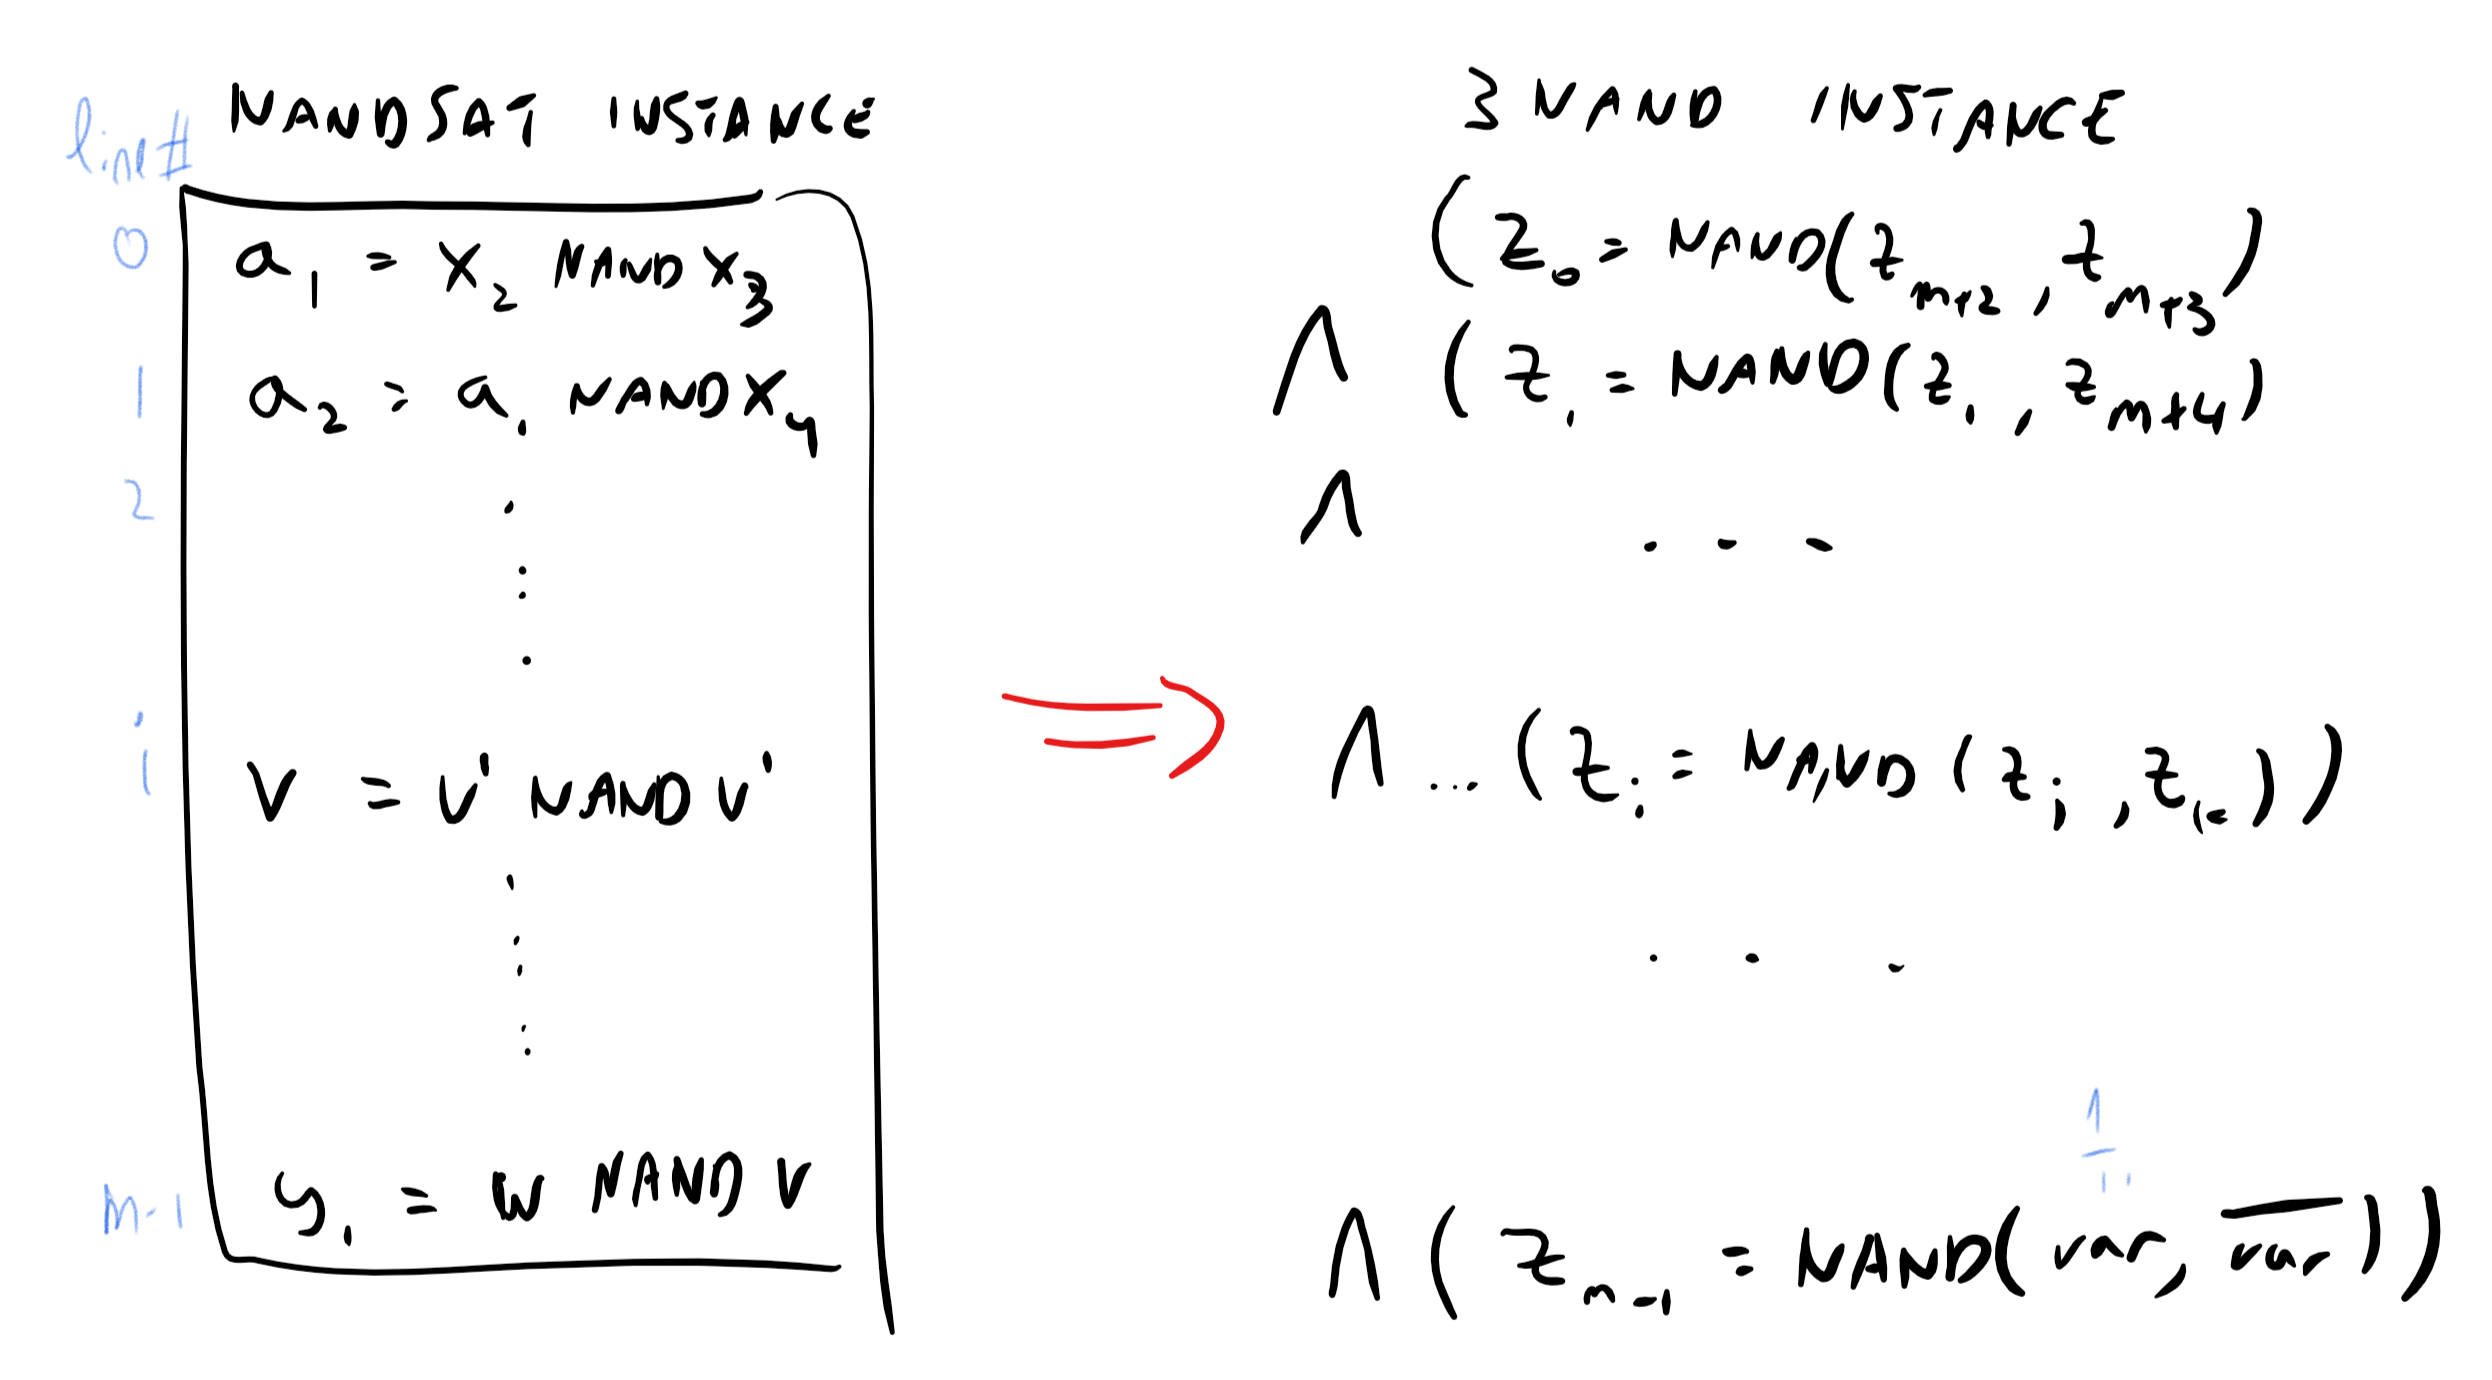 line#
NANDSAT INSTANCE
0
a₁ = x₂ NAND x₃
1
a₂ = a₁ NAND x₄
2
i
v = v' NAND v'
m-1
y₁ = w NAND v
⇒
3NAND INSTANCE
(z₀ = NAND(z_{m+2}, z_{m+3})
∧ (z₁ = NAND(z₁, z_{m+4})
∧ ...
∧ ... (z_i = NAND(z_j, z_k))
...
∧ (z_{m-1} = NAND(var, \overline{var}))